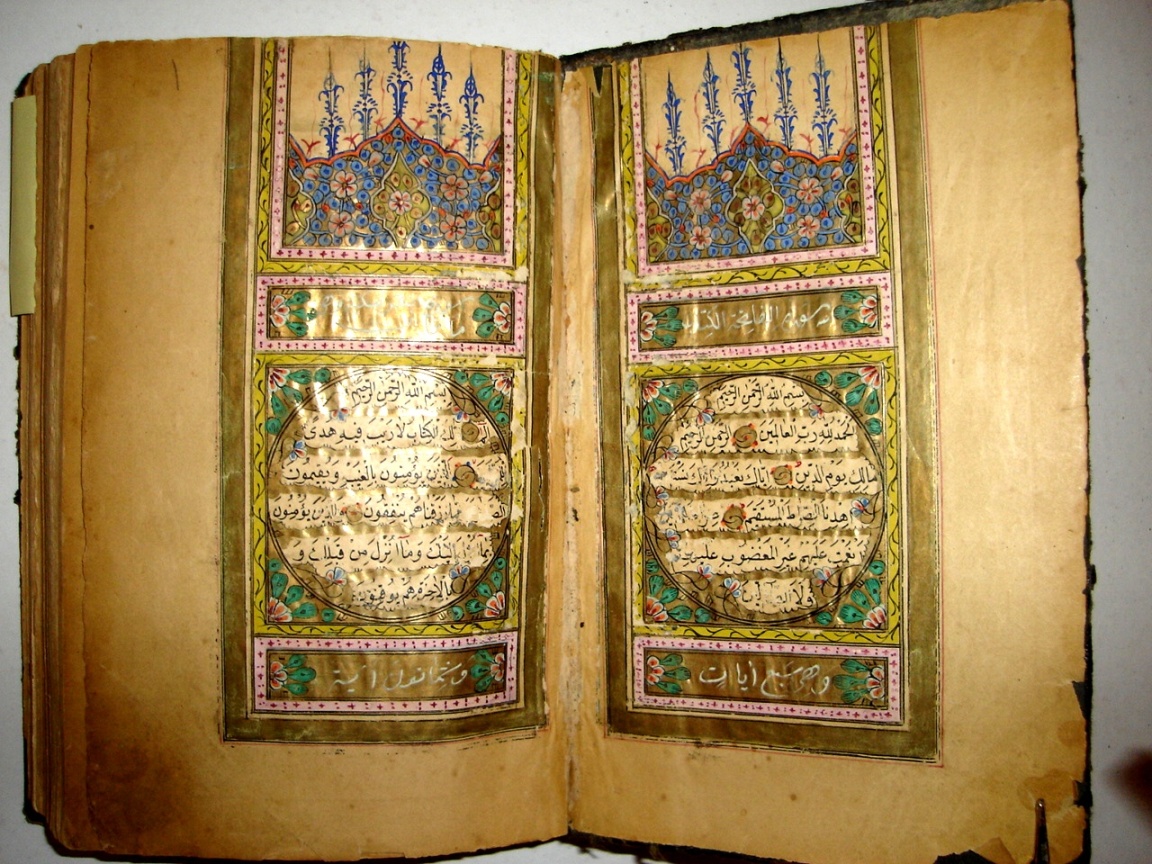 سورة الفاتحة الكتاب
بسم الله الرحمن الرحيم
الحمد لله رب العالمين الرحمن الرحيم
مالك يوم الدين اياك نعبد واياك نستعين
اهدنا الصراط المستقيم صراط
انعمت عليهم غير المغضوب عليهم
ولا الضالين
وهي سبع آيات
بسم الله الرحمن الرحيم
ذلك الكتاب لا ريب فيه هدى
الذين يؤمنون بالغيب ويقيمون
رزقناهم ينفقون والذين يؤمنون
بما اليك وما انزل من قبلك و
بالاخرة هم يوقنون
وثمانون آية